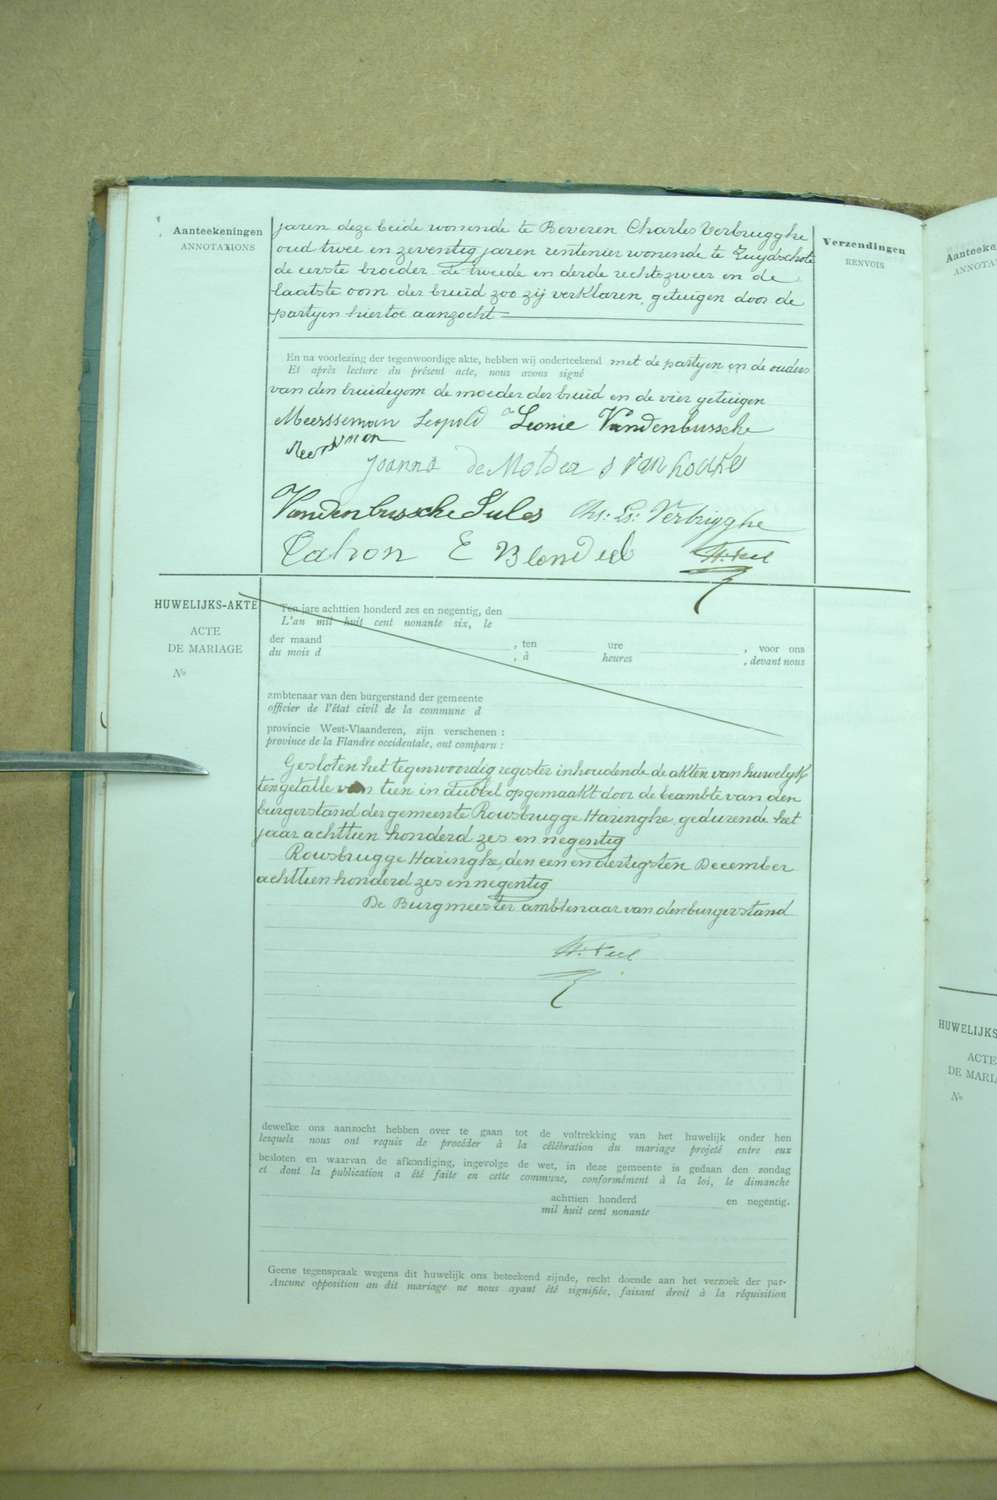 Aanteekeningen
ANNOTATIONS
jaren deze beide wonende te Beveren Charles Verbrugghe
oud twee en zeventig jaren rentenier wonende te Zuydschote
de eerste broeder, de tweede en derde rechtszweer en de
laatste oom der bruid zoo zij verklaren, getuigen door de
partyen hiertoe aanzocht
Verzendingen
RENVOIS
En na voorlezing der tegenwoordige akte, hebben wij onderteekend met de partyen en de ouders
Et après lecture du présent acte, nous avons signé
van den bruidegom de moeder der bruid en de vier getuigen
Meersseman Leopold Leonie Vandenbussche
Meersseman
Joanna deMolder
Vandenbussche Jules Chs: Ls: Verbrugghe
Tahon E Blondeel
HUWELIJKS-AKTE
ACTE
DE MARIAGE
No
Ten jare achttien honderd zes en negentig, den
L'an mil huit cent nonante six, le
der maand , ten ure , voor ons
du mois d , à heures , devant nous
ambtenaar van den burgerstand der gemeente
officier de l'état civil de la commune d
provincie West-Vlaanderen, zijn verschenen :
province de la Flandre occidentale, ont comparu :
Gesloten het tegenwoordig register inhoudende de akten van huwelyk
ten getalle van tien in dubbel opgemaakt door de beambte van den
burgerstand der gemeente Rousbrugge Haringhe, gedurende het
jaar achttien honderd zes en negentig
Rousbrugge Haringhe, den een en dertigsten December
achttien honderd zes en negentig
De Burgmeester ambtenaar van den burgerstand
dewelke ons aanzocht hebben over te gaan tot de voltrekking van het huwelijk onder hen
lesquels nous ont requis de procéder à la célébration du mariage projeté entre eux
besloten en waarvan de afkondiging, ingevolge de wet, in deze gemeente is gedaan den zondag
et dont la publication a été faite en cette commune, conformément à la loi, le dimanche
achttien honderd en negentig.
mil huit cent nonante
Geene tegenspraak wegens dit huwelijk ons beteekend zijnde, recht doende aan het verzoek der par-
Aucune opposition au dit mariage ne nous ayant été signifiée, faisant droit à la réquisition
Aanteeke
ANNOTA
HUWELIJKS
ACTE
DE MARIA
No